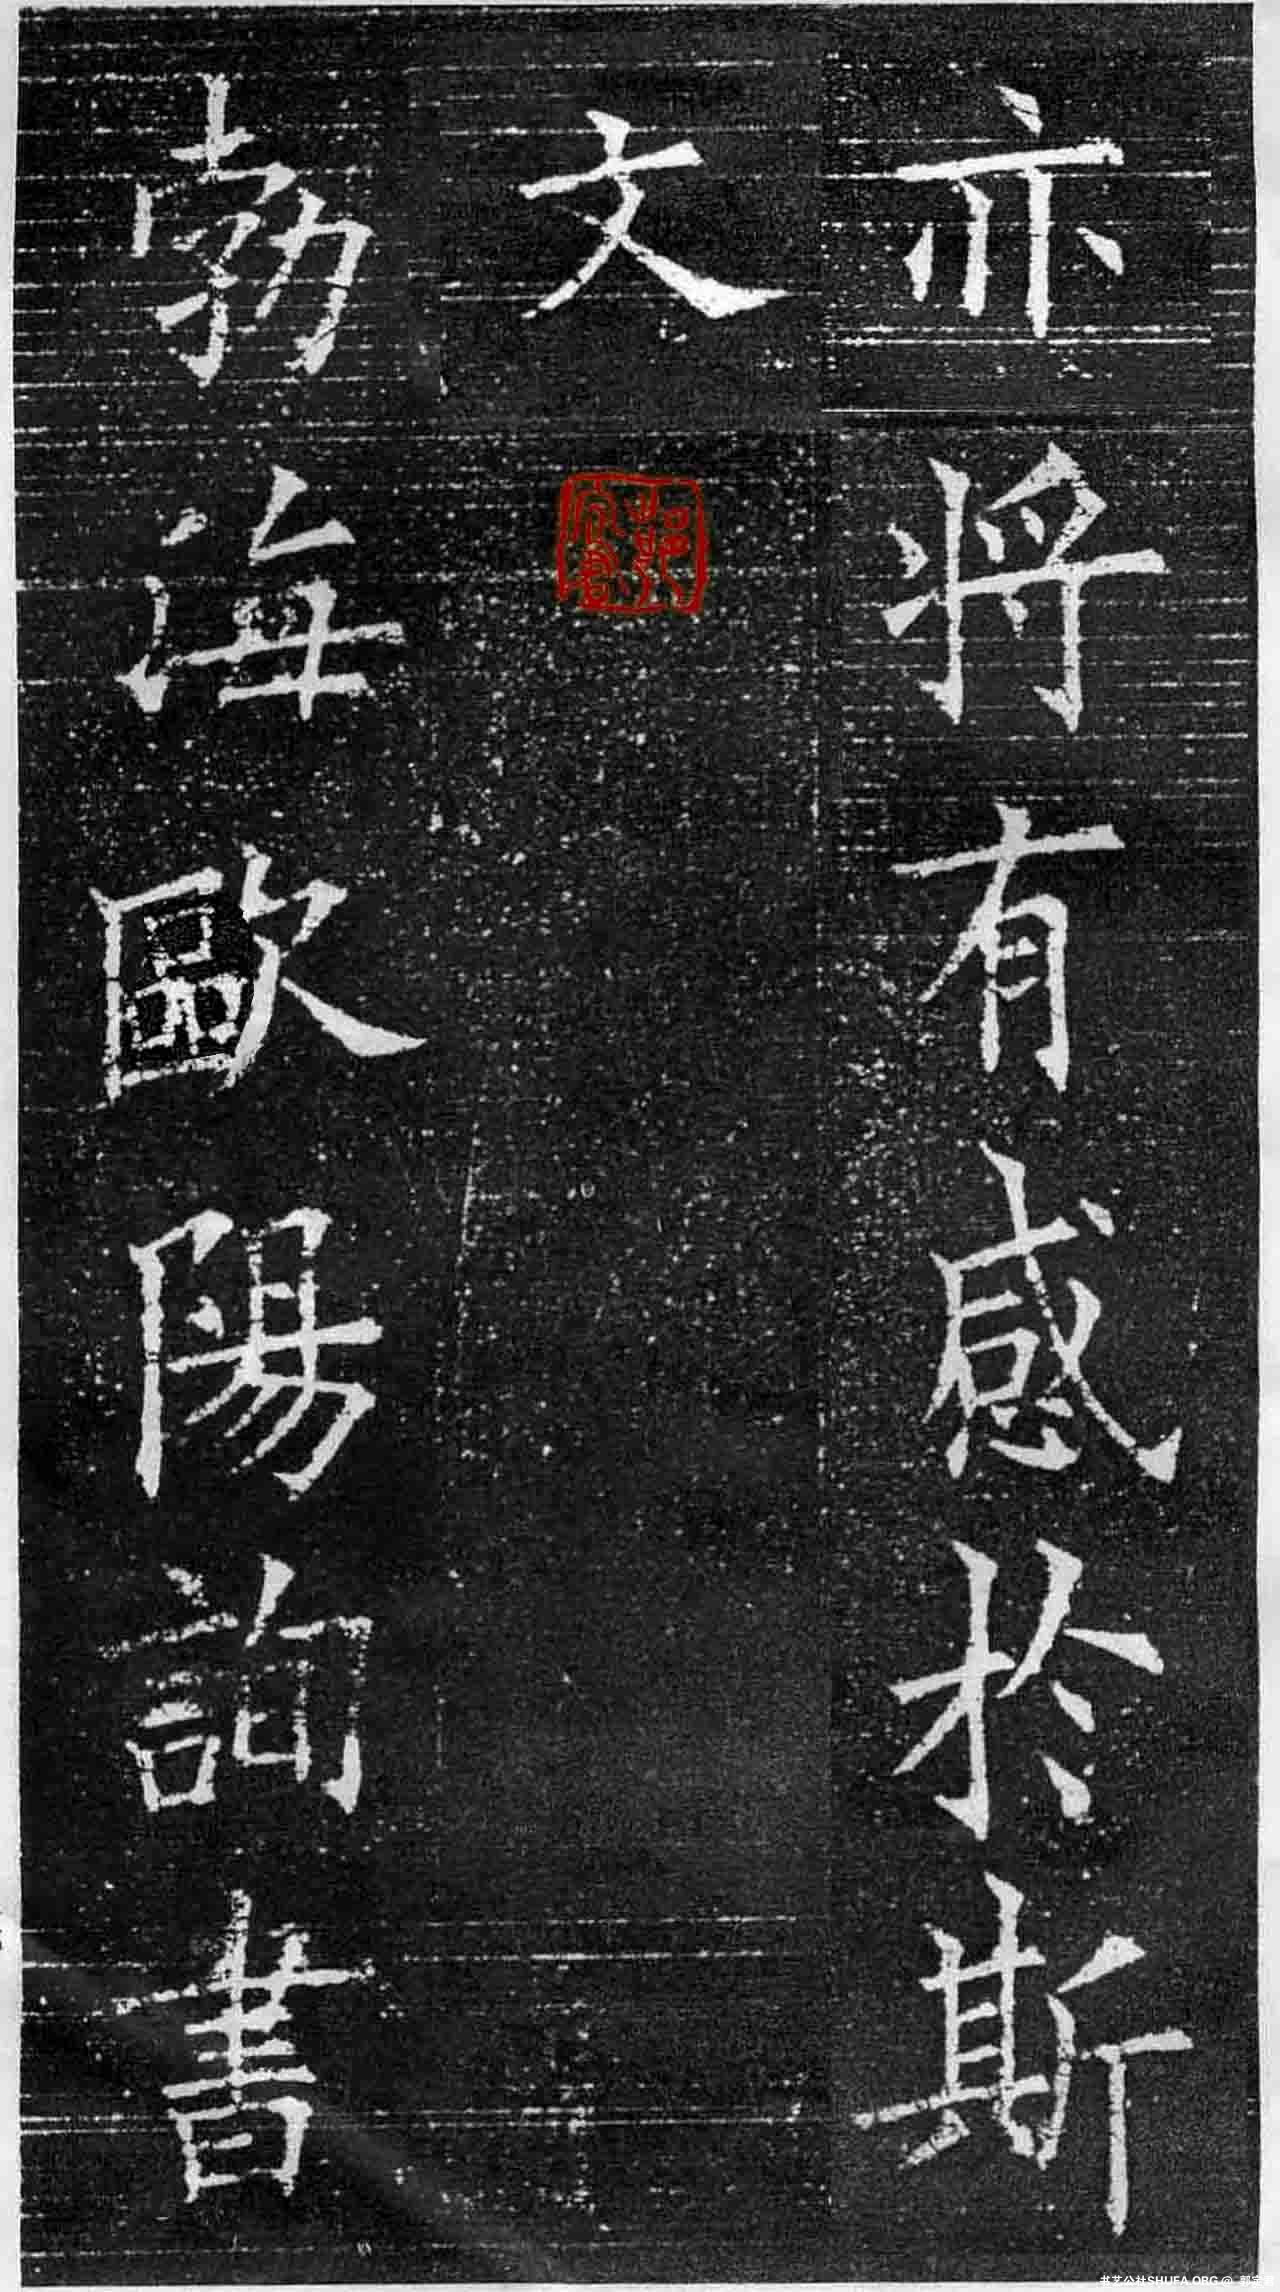 亦將有感於斯
文
勃海歐陽詢書
书艺公社SHUFA.ORG @